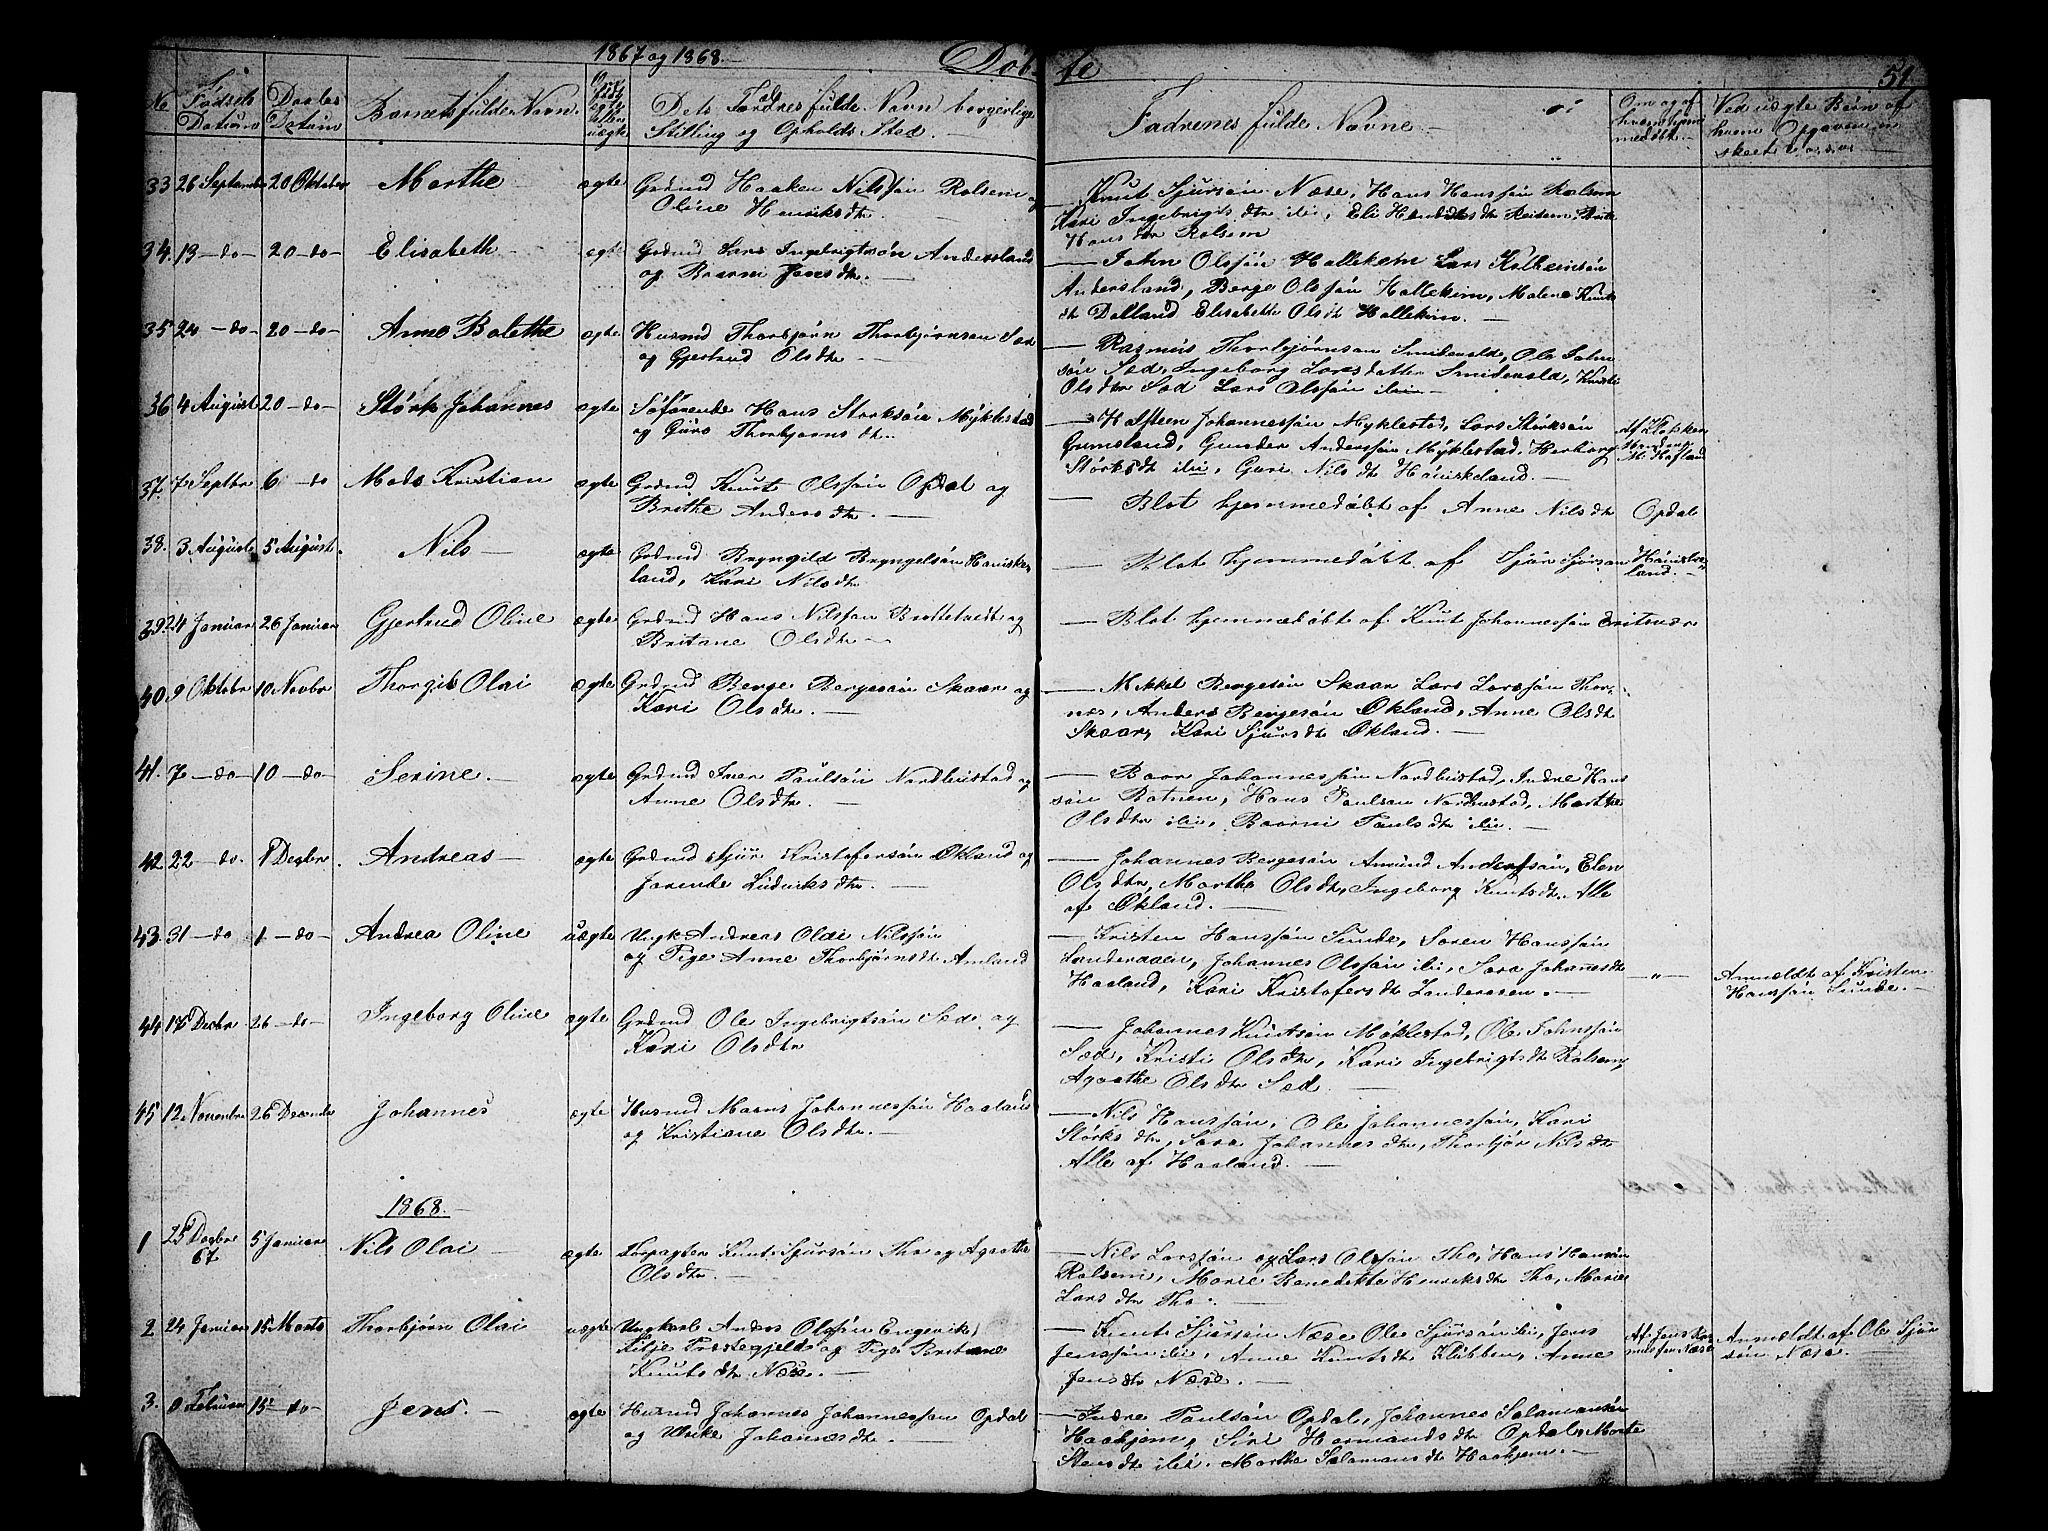 1867 og 1868.
Døb-
te
51
No
Fødsels
Datum
Daabs
Datum
Barnets fulde Navn.
ægte
eller
uægte
Dets Forældres fulde Navn borgerlige
Stilling og Opholds Sted.
Fadrenes fulde Navne
Om og af
hvem hjem
medøbt
Ved uægte Børn af
hvem Opgaven er
skeet
33 26 Septembr 20 Oktober Marthe ægte Grdmd Haaken Nilssøn Rolsem og
Oline Henriksdtr.
Knut Sjursøn Næse, Hans Hanssøn Rolsem
Kari Ingebrigtsdtr ibi, Eli Henriksdtr
Hansdtr Rolsem
34. 13 - do - 20 - do Elisabeth ægte Grdmd Lars Ingebrigtsøn Andersland
og Jensdtr.
John Olssøn Hallekem Lars
Andersland, Berge Olssøn Hallekim, Malene Knuts
dtr Dalland Elisabette Olsdtr Hallekim.
35 20 - do - 20 - do - Anne Bolethe ægte Husmd Thorbjørn Thorbjørnsen Sæd
og Gjertrud Olsdtr.
Rasmus Thorbjørnsen Smidevold, Ole John
søn Sæd, Ingeborg Larsdatter Smidevold, Kristi
Olsdtr Sæd Lars Olssøn ibi
36 4 August 20 - do Størk Johannes ægte Søfarende Hans Storksøn Myklestad
og Guro Thorbjørnsdtr.
Halsteen Johannessøn Myklestad, Lars Størksøn
Gumsland, Gunder Anderssøn Myklestad, Herborg
Størksdtr ibi, Guri Nilsdtr Haviskeland.
Af Klokker
37. 7 Septbr 6 - do Mads Kristian ægte Grdmd Knut Olssøn Opdal og
Brithe Andersdtr.
Blot hjemmedøbt af Anne Nilsdtr Opdal
38. 3 August 5 August. Nils ægte Grdmd Bryngild Bryngelsøn Haviske
land, Kari Nilsdtr
Blot hjemmedøbt af Sjur Sjursen Haviske
land.
39 24 Januar 26 Januar Gjertrud Oline ægte Grdmd Hans Nilssøn og
Britane Olsdtr
Blot hjemmedøbt af Knut Johannessøn
40 9 Oktobr 10 Novbr Thorgils Olai ægte Grdmd Berge Bergesøn Skaar og
Kari Olsdtr.
Mikkel Bergesøn Skaar Lars Larssøn Thor-
nes, Anders Bergesøn Økland, Anne Olsdtr
Skaar, Kari Sjursdtr Økland.
41. 7 - do 10 - do Serine. ægte Grdmd Iver Paulsøn Nordhustad og
Anne Olsdtr.
Baar Johannessøn Nordhustad, Indre Hans
søn Botnen, Hans Paulsøn Nordhustad, Marthe
Olsdtr ibi, Baarni Paulsdtr ibi.
42 22 - do. 1 Decbr. Andreas ægte Grdmd Sjur Kristofersøn Økland og
Jorende Ludviksdtr.
Johannes Bergesøn Amund Anderssøn, Elen
Olsdtr, Martha Olsdtr, Ingeborg Knutsdtr. Alle
af Økland.
43. 31 - do 1 - do - Andrea Oline uægte Ungk. Andreas Olai Nilssøn
og Pige Anne Thorbjørnsdtr Amland
Kristen Hanssøn Sunde, Soren Hanssøn
Sanderaaen, Johannes Olssøn ibi, Sara Johannesdtr
Haaland, Kari Kristofersdtr Sanderaaen.
- " - Anmeldt af Kristen
Hanssøn Sunde.
44 17 Decbr 26 - do - Ingeborg Oline ægte Grdmd Ole Ingebrigtsøn Sæd og
Kari Olsdtr
Johannes Knutsøn Myklestad, Ole Johnssøn
Sæd, Kristi Olsdtr, Kari Ingebrigtsdtr Rolsem,
Agaathe Olsdtr Sæd
45 12 Novembr 26 Decembr Johannes ægte Husmd Mons Johannessøn Haaland
og Kristiane Olsdtr.
Nils Hanssøn, Ole Johannessøn, Kari
Størksdtr, Sara Johannesdtr, Thorbjør Nilsdtr
Alle af Haaland.
1868.
1 25 Decbr 5 Januar Nils Olai ægte Forpagter Knut Sjursøn Tho og Agaathe
67 Olsdtr.
Nils Larssøn og Lars Olssøn Tho, Hans Hanssøn
Rolsem, Marie Benedikte Henriksdtr Tho, Marie
Larsdtr Tho.
2 24 Januar 15 Marts Thorbjørn Olai uægte Ungkarl Anders Olssøn Engevik,
Præstegjeld og Pige Britane
Knutsdtr Næse.
Knut Sjursøn Næse Ole Sjursøn ibi, Jens
Jenssøn ibi, Anne Knutsdtr Klubben, Anne
Jensdtr Næse.
Af Jens Ras
mussen Næse
Anmeldt af Ole Sjur
søn Næse.
3. Februar 15 - do Jens. ægte Husmd Johannes Johannessøn Opdal
og Ulrike Johannesdtr.
Indre Paulsøn Opdal, Johannes Salamonsøn
Haakjem, Siri Hermundsdtr Opdal, Marte
Stensdtr ibi. Marthe Salamonsdtr Haakjem.